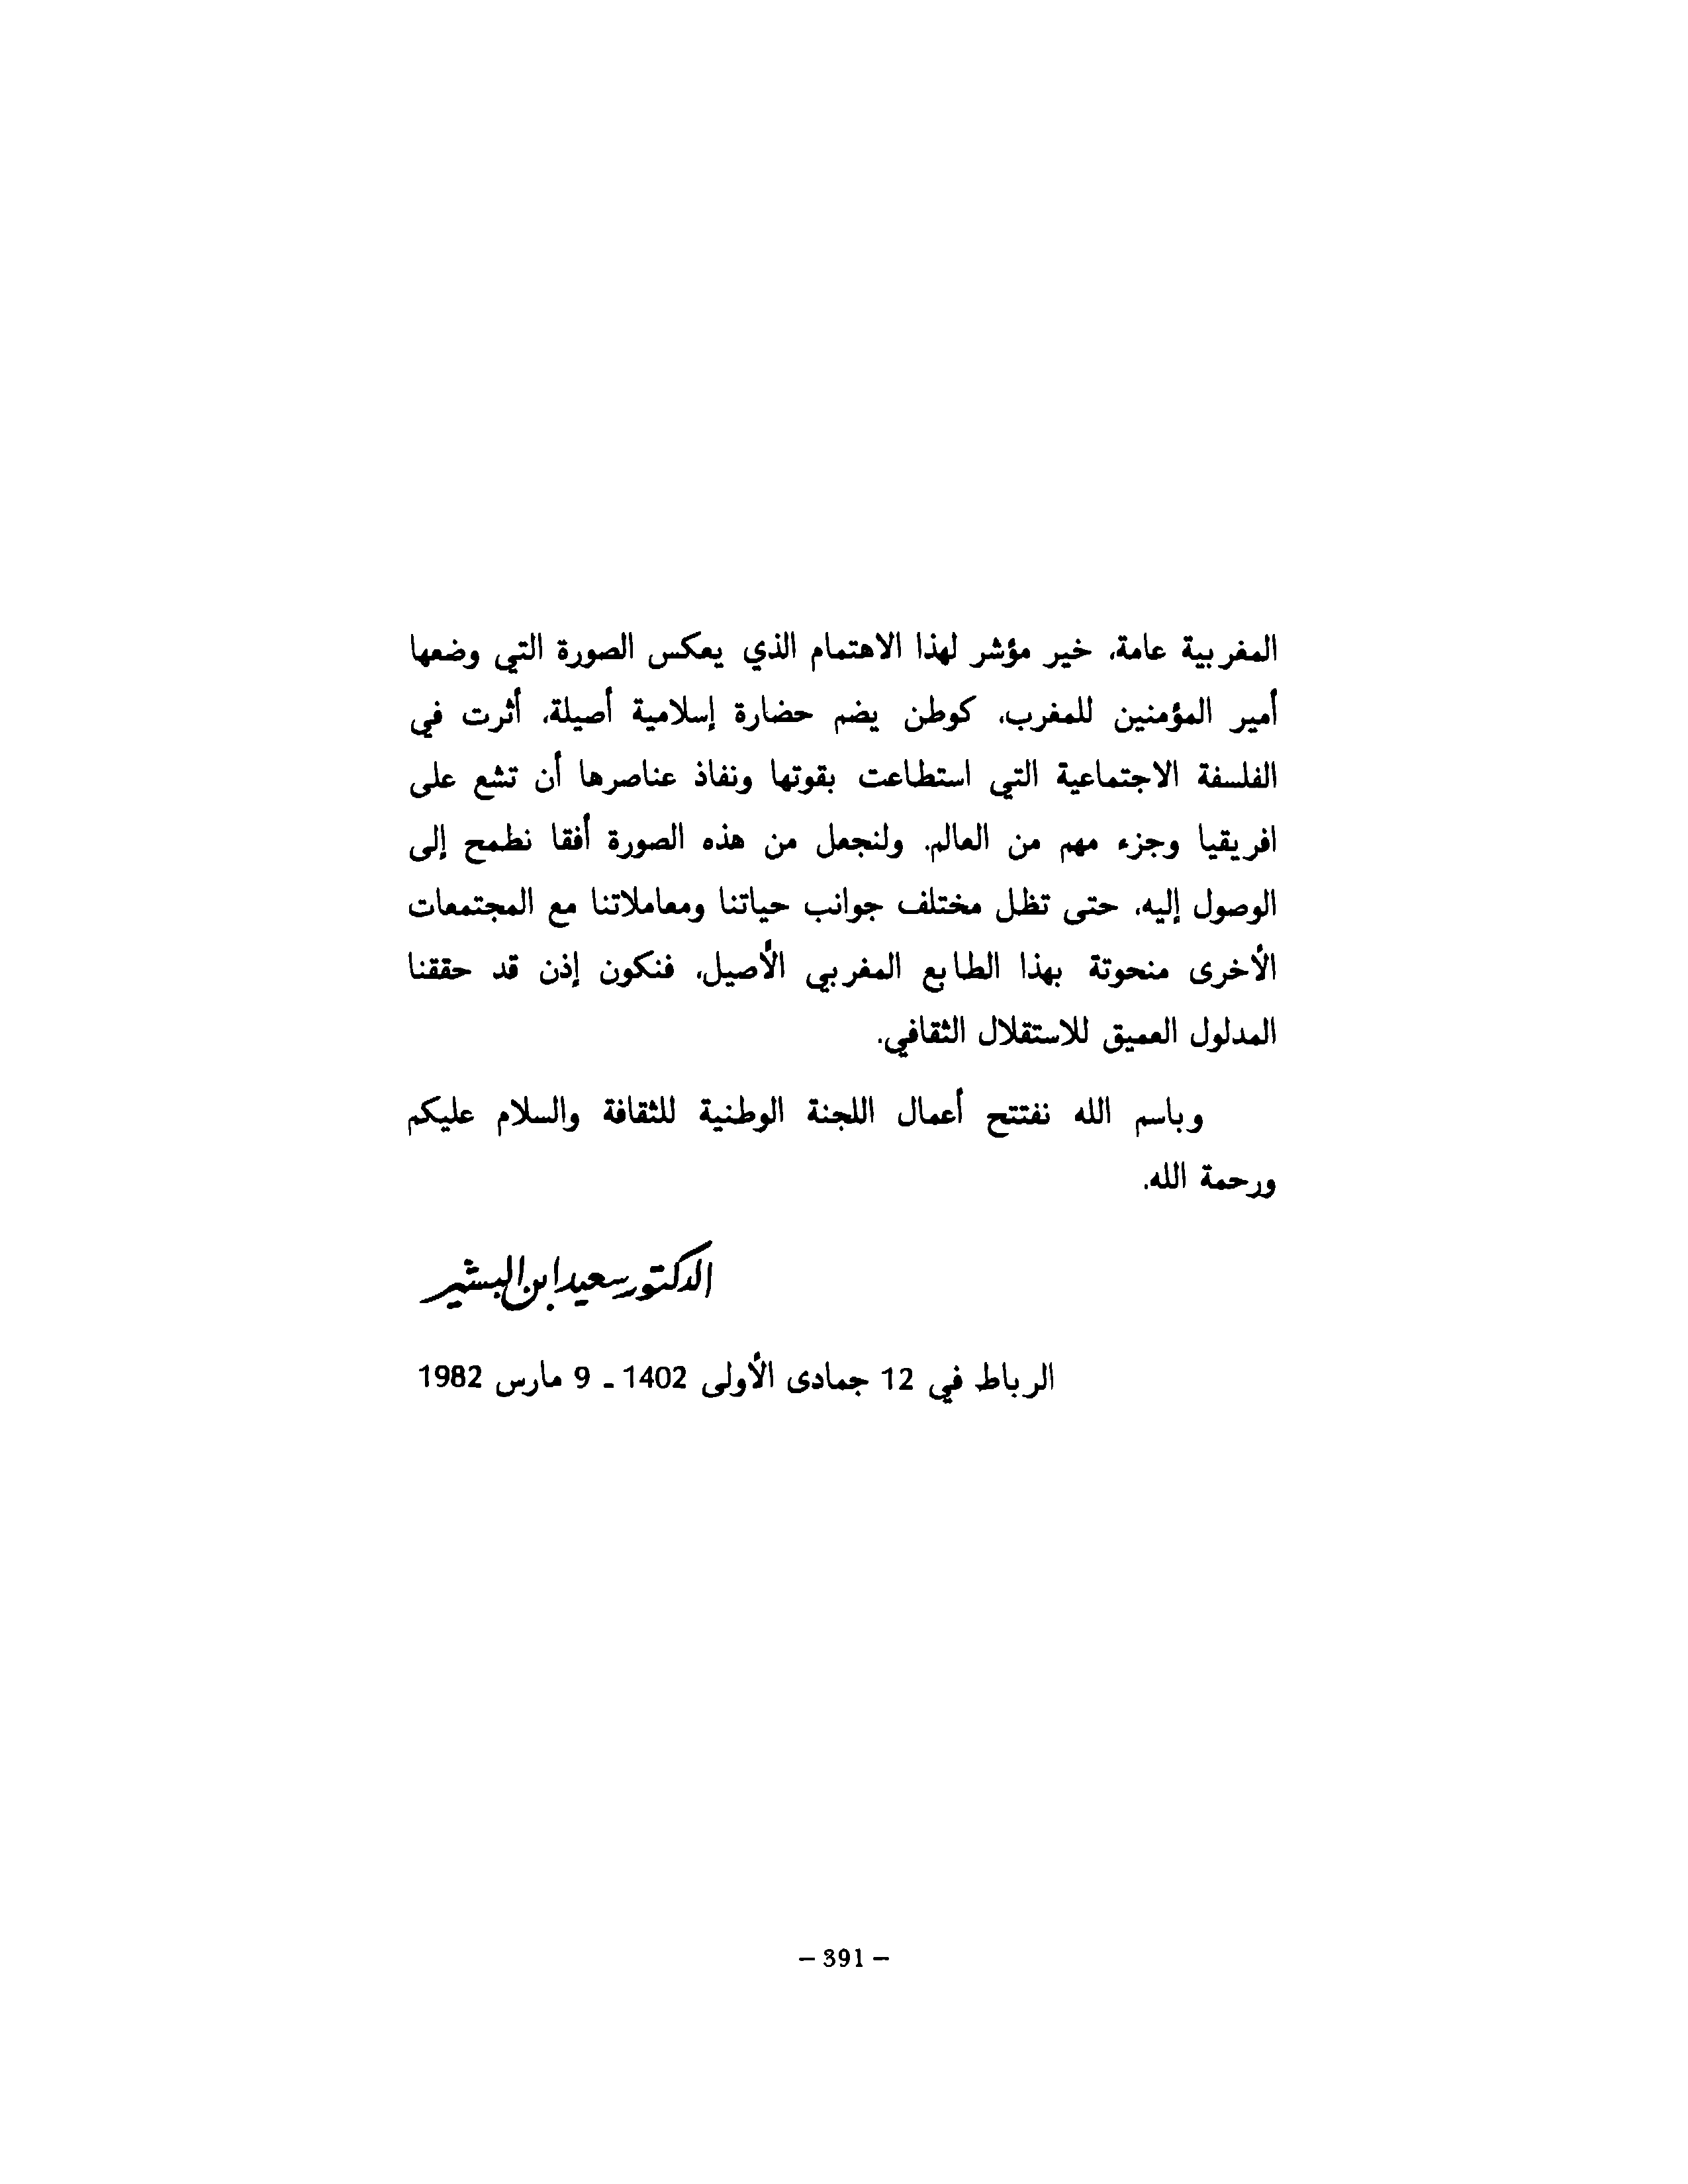 المغربية عامة، خير مؤشر لهذا الاهتمام الذي يعكس الصورة التي وضعها
أمير المؤمنين للمغرب، كوطن يضم حضارة إسلامية أصيلة، أثرت في
الفلسفة الاجتماعية التي استطاعت بقوتها ونفاذ عناصرها أن تشع على
افريقيا وجزء مهم من العالم. ولنجعل من هذه الصورة أفقا نطمح إلى
الوصول إليه، حتى تظل مختلف جوانب حياتنا ومعاملاتنا مع المجتمعات
الأخرى منحوتة بهذا الطابع المغربي الأصيل، فنكون إذن قد حققنا
المدلول العميق للاستقلال الثقافي.
وباسم الله نفتتح أعمال اللجنة الوطنية للثقافة والسلام عليكم
ورحمة الله.
الدكتور سعيد ابن البشير
الرباط في 12 جمادى الأولى 1402 ـ 9 مارس 1982
– 391 –